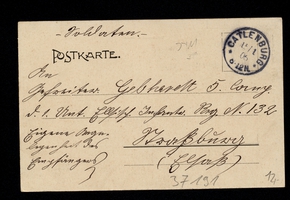 - Soldaten. -
POSTKARTE.
CATLENBURG
An
Gefreiter Gebhardt 5. Comp.
d. 1. Unt. Elsäß. Infante. Reg. N. 132
Eigene Ange-
legenheit des
Empfängers
Straßburg
(Elsaß)
37191
12.